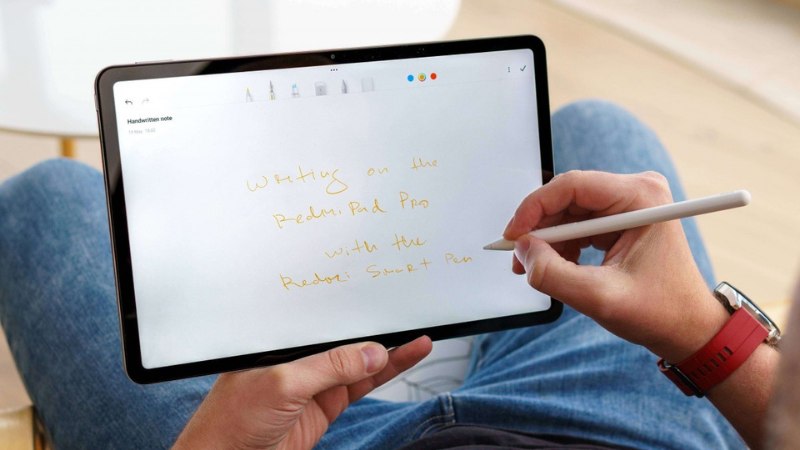 Handwritten note
Writing on the
Redmi Pad Pro
with the
Redmi Smart Pen